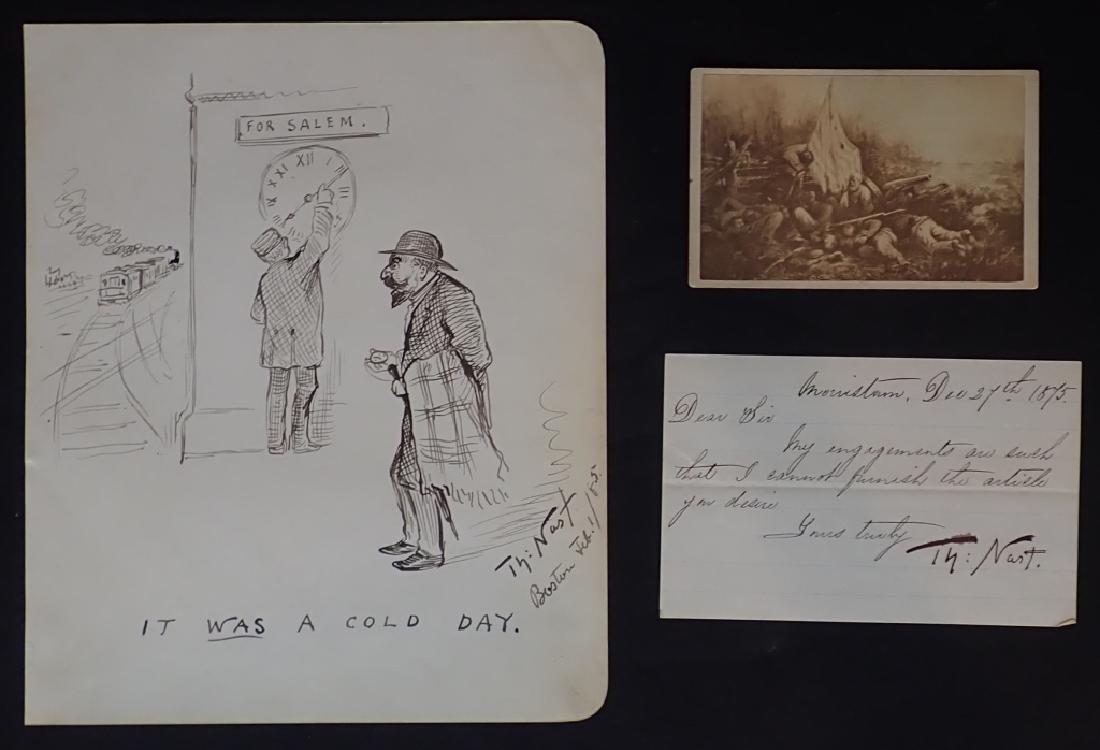 FOR SALEM.
IX X XI XII I
Th: Nast.
Boston Feb. 1/85.
IT WAS A COLD DAY.
Morristown, Dec 27th 1875.
Dear Sir
My engagements are such
that I cannot furnish the article
you desire
Yours truly
Th: Nast.